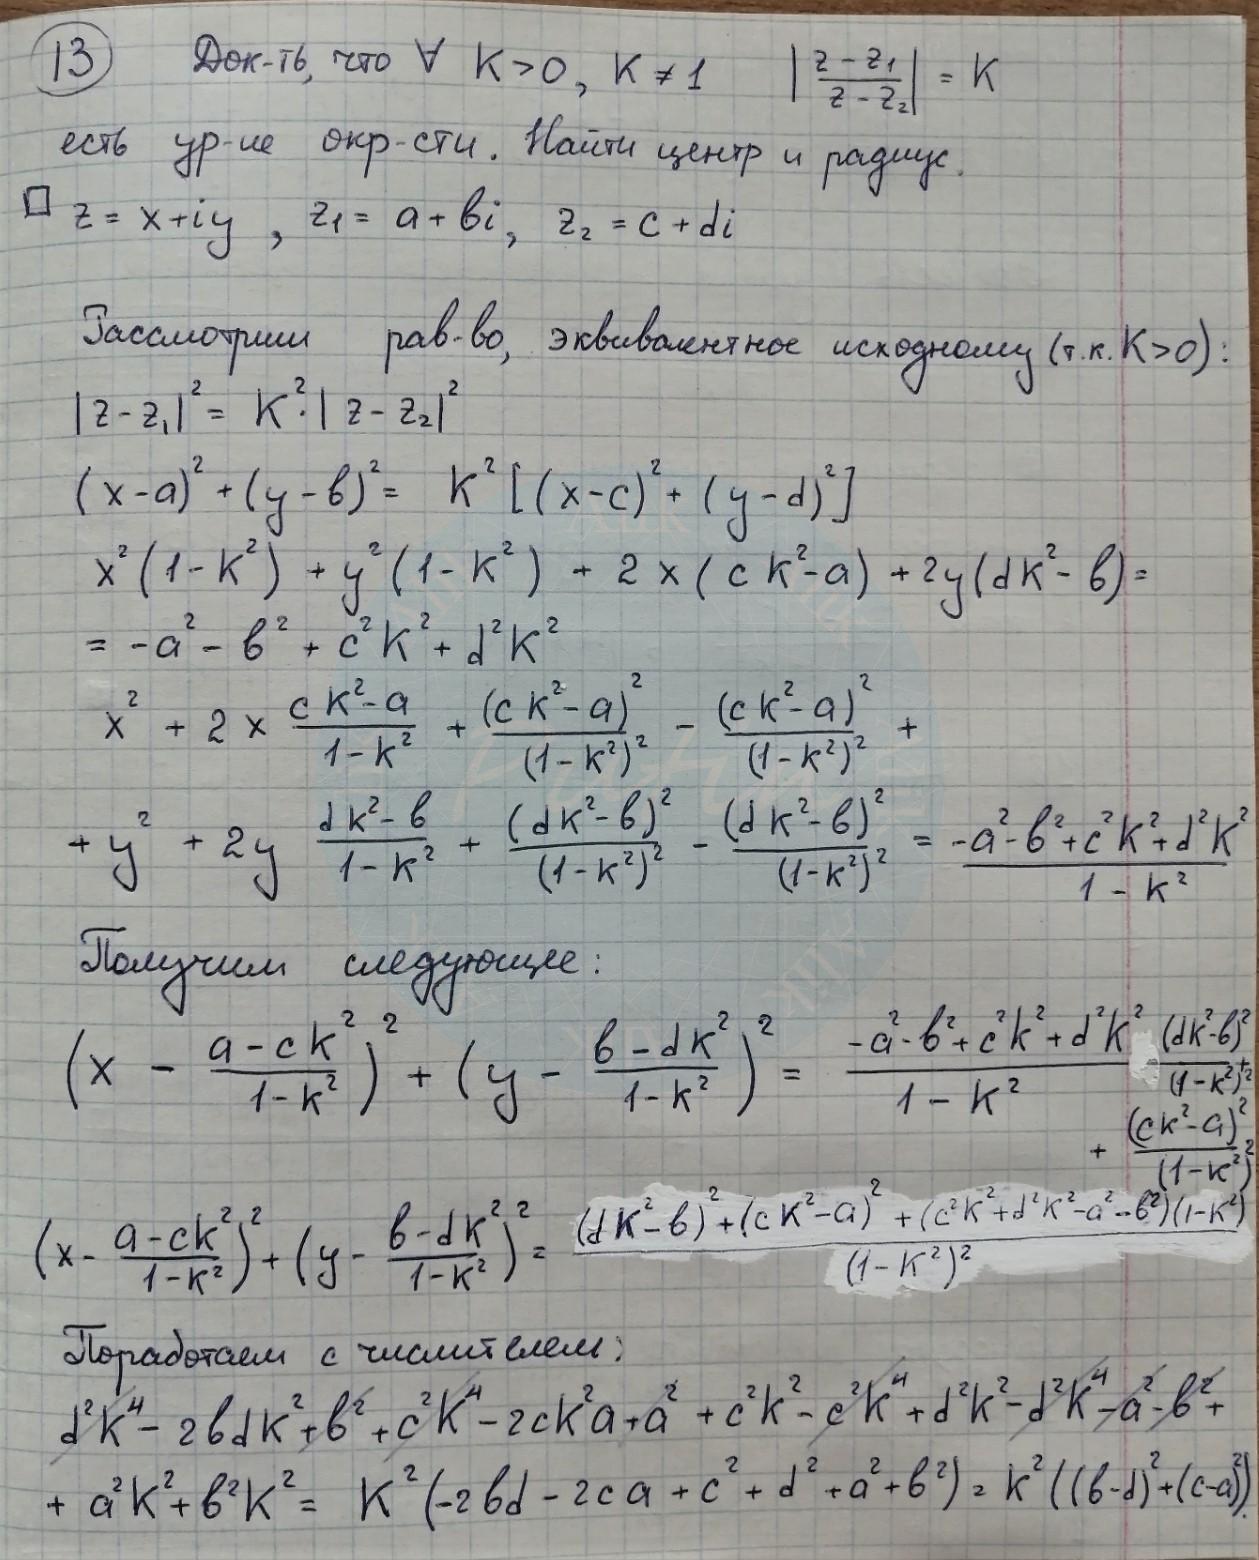 13 Док-ть, что ∀ K > 0, K ≠ 1 |(z - z₁)/(z - z₂)| = K
есть ур-ие окр-сти. Найти центр и радиус.
□ z = x + iy, z₁ = a + bi, z₂ = c + di
Рассмотрим рав-во, эквивалентное исходному (т.к. K > 0):
|z - z₁|² = K² · |z - z₂|²
(x - a)² + (y - b)² = K² [(x - c)² + (y - d)²]
x²(1 - K²) + y²(1 - K²) + 2x(cK² - a) + 2y(dK² - b) =
= -a² - b² + c²K² + d²K²
x² + 2x (cK² - a)/(1 - K²) + (cK² - a)²/(1 - K²)² - (cK² - a)²/(1 - K²)² +
+ y² + 2y (dK² - b)/(1 - K²) + (dK² - b)²/(1 - K²)² - (dK² - b)²/(1 - K²)² = (-a² - b² + c²K² + d²K²)/(1 - K²)
Получим следующее:
(x - (a - cK²)/(1 - K²))² + (y - (b - dK²)/(1 - K²))² = (-a² - b² + c²K² + d²K²)/(1 - K²) + (dK² - b)²/(1 - K²)²
+ (cK² - a)²/(1 - K²)²
(x - (a - cK²)/(1 - K²))² + (y - (b - dK²)/(1 - K²))² = ((dK² - b)² + (cK² - a)² + (c²K² + d²K² - a² - b²)(1 - K²))/(1 - K²)²
Поработаем с числителем:
d²K⁴ - 2bdK² + b² + c²K⁴ - 2cK²a + a² + c²K² - c²K⁴ + d²K² - d²K⁴ - a² - b² +
+ a²K² + b²K² = K²(-2bd - 2ca + c² + d² + a² + b²) = K²((b - d)² + (c - a)²)